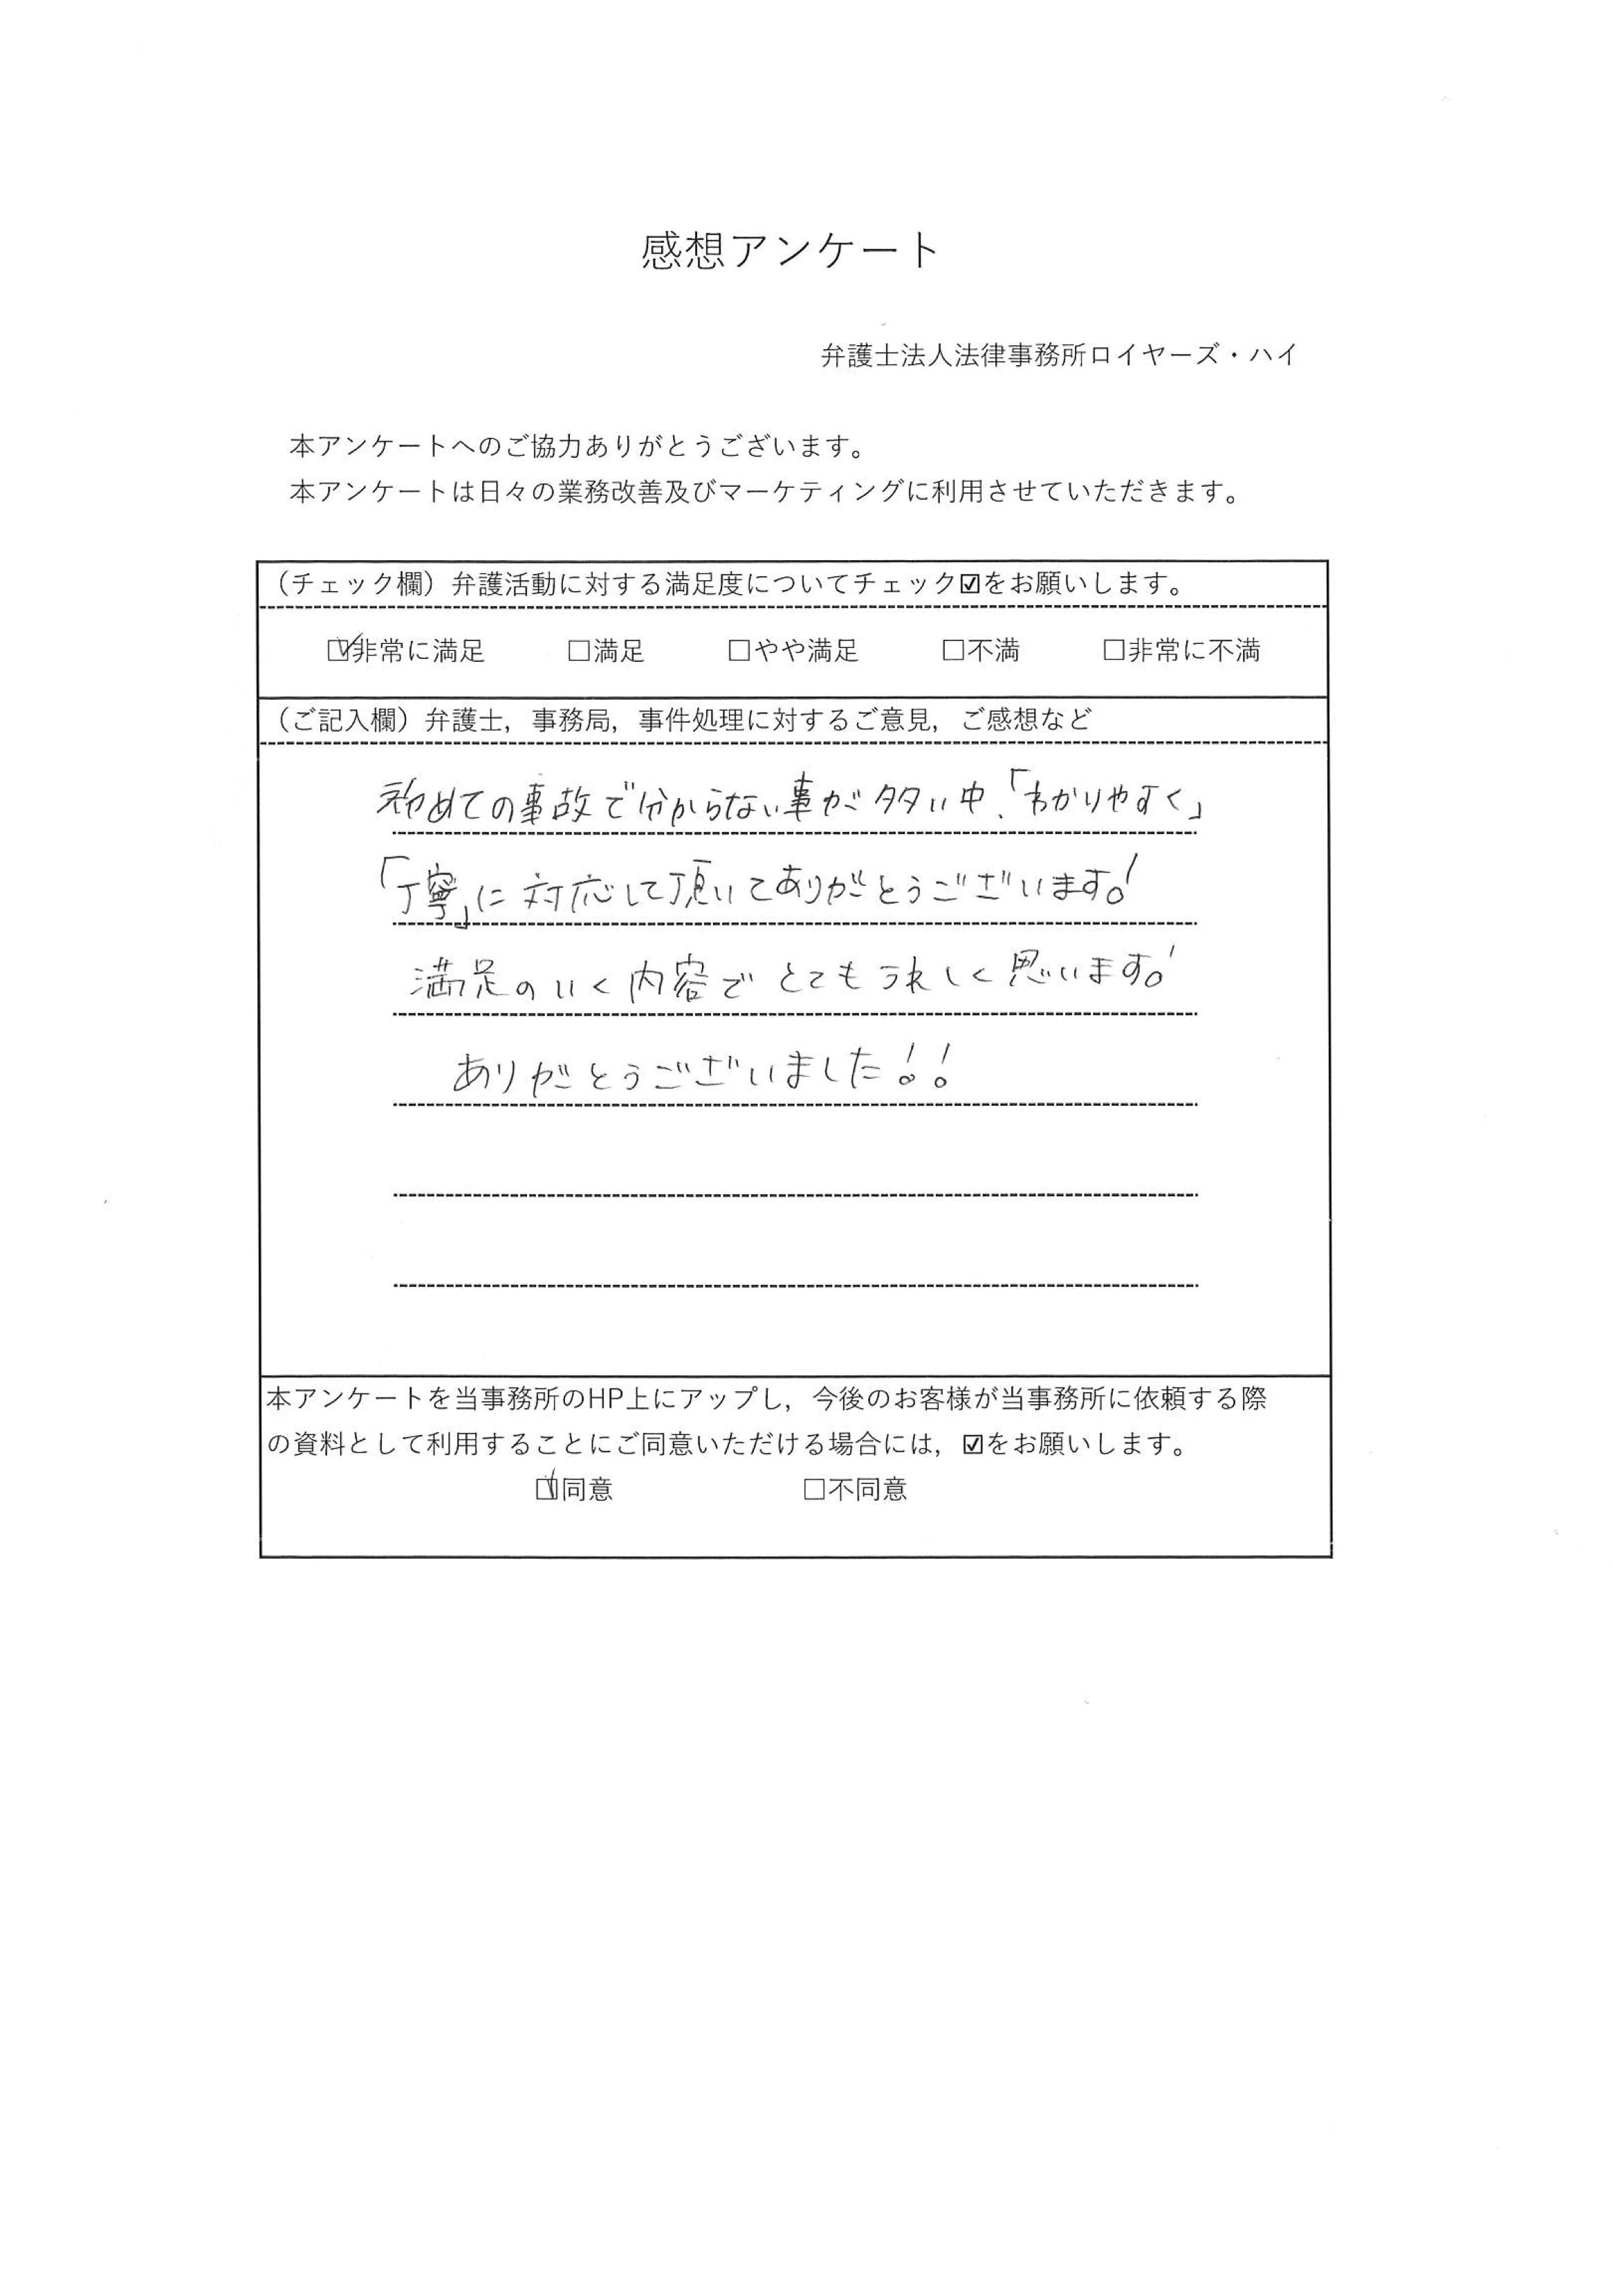 感想アンケート
弁護士法人法律事務所ロイヤーズ・ハイ
本アンケートへのご協力ありがとうございます。
本アンケートは日々の業務改善及びマーケティングに利用させていただきます。
（チェック欄）弁護活動に対する満足度についてチェック☑をお願いします。
☑非常に満足 □満足 □やや満足 □不満 □非常に不満
（ご記入欄）弁護士，事務局，事件処理に対するご意見，ご感想など
初めての事故で分からない事が多い中、「わかりやすく」
「丁寧」に対応して頂いてありがとうございます!
満足のいく内容でとてもうれしく思います!
ありがとうございました!!
本アンケートを当事務所のHP上にアップし，今後のお客様が当事務所に依頼する際
の資料として利用することにご同意いただける場合には，☑をお願いします。
☑同意 □不同意